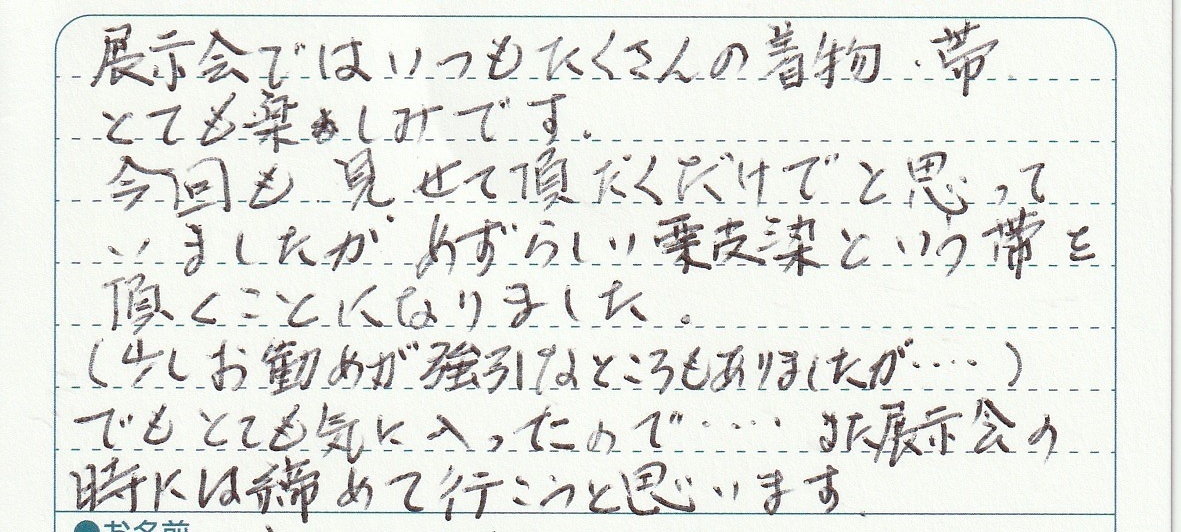 展示会ではいつもたくさんの着物・帯
とても楽しみです。
今回も見せて頂だくだけでと思って
いましたが、めずらしい栗皮染という帯を
頂くことになりました。
(少しお勧めが強引なところもありましたが‥‥)
でもとても気に入ったので‥‥また展示会の
時には締めて行こうと思います
●お名前